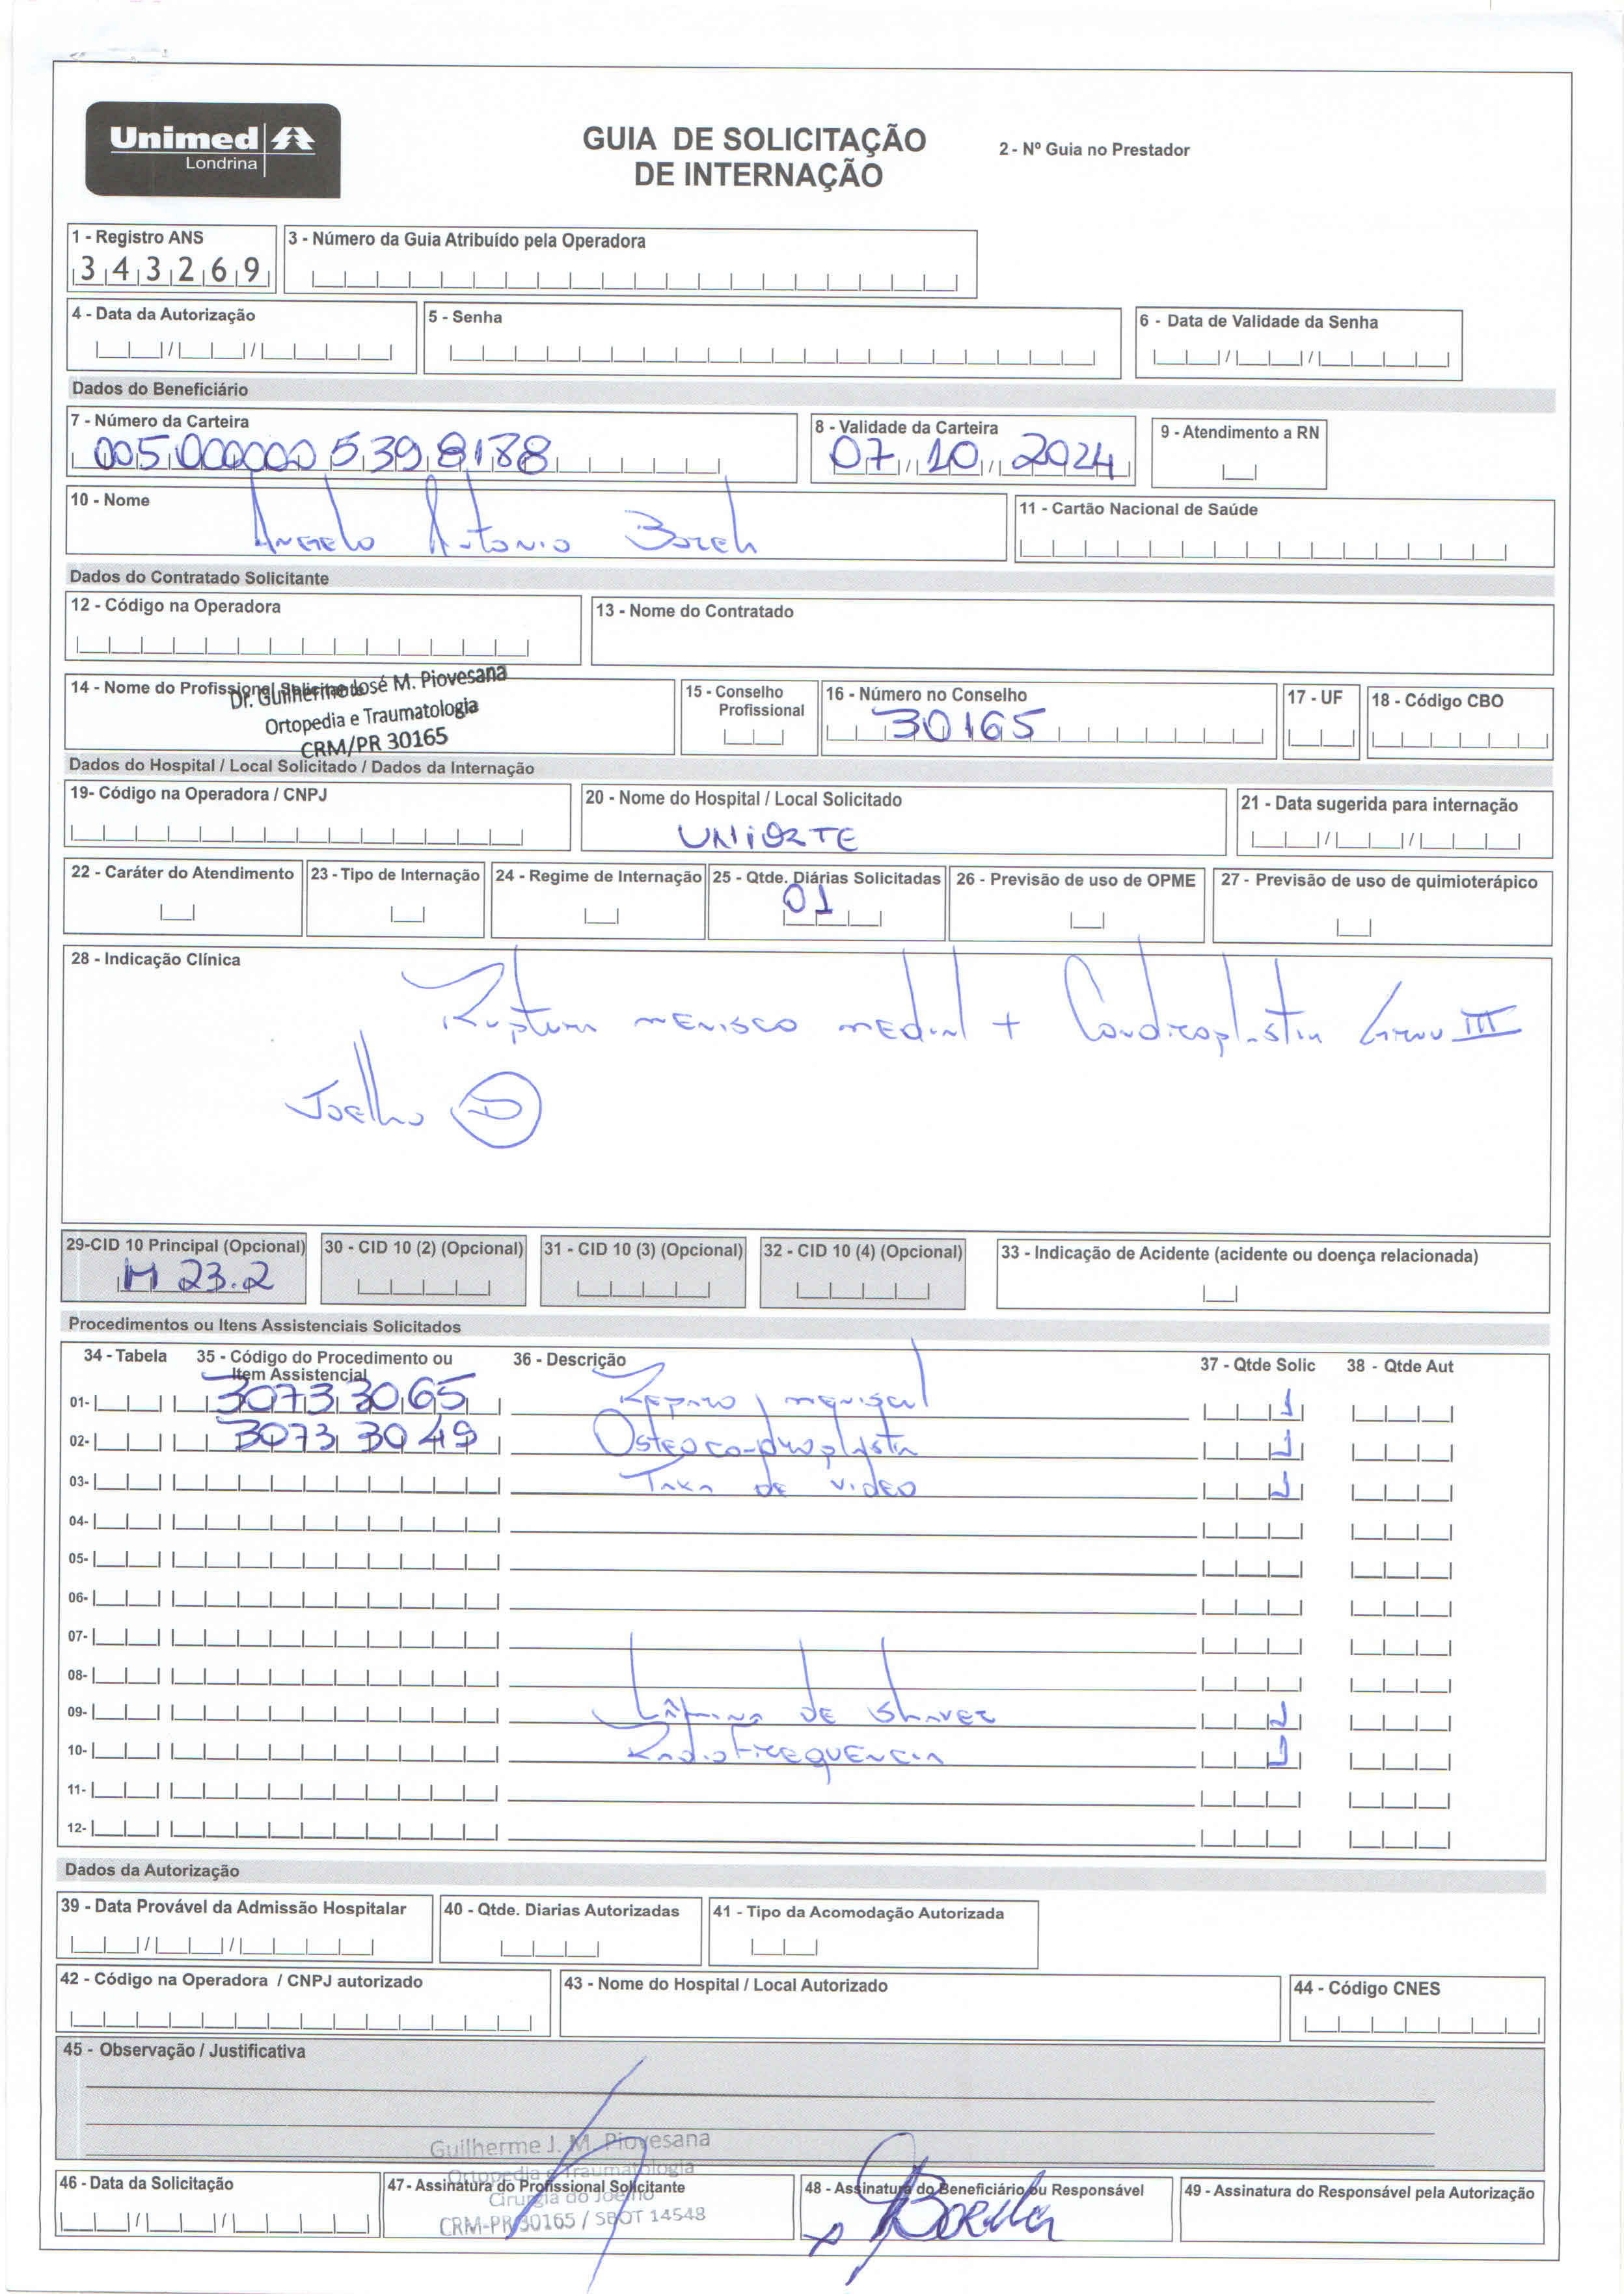 Unimed
Londrina
GUIA DE SOLICITAÇÃO
DE INTERNAÇÃO
2 - Nº Guia no Prestador
1 - Registro ANS
343269
3 - Número da Guia Atribuído pela Operadora
4 - Data da Autorização
5 - Senha
6 - Data de Validade da Senha
Dados do Beneficiário
7 - Número da Carteira
005000000 5398188
8 - Validade da Carteira
07/10/2024
9 - Atendimento a RN
10 - Nome
Angelo Antonio
11 - Cartão Nacional de Saúde
Dados do Contratado Solicitante
12 - Código na Operadora
13 - Nome do Contratado
14 - Nome do Profissional Solicitante
Dr. Guilherme José M. Piovesana
Ortopedia e Traumatologia
CRM/PR 30165
15 - Conselho
Profissional
16 - Número no Conselho
30165
17 - UF
18 - Código CBO
Dados do Hospital / Local Solicitado / Dados da Internação
19- Código na Operadora / CNPJ
20 - Nome do Hospital / Local Solicitado
UNIORTE
21 - Data sugerida para internação
22 - Caráter do Atendimento
23 - Tipo de Internação
24 - Regime de Internação
25 - Qtde. Diárias Solicitadas
01
26 - Previsão de uso de OPME
27 - Previsão de uso de quimioterápico
28 - Indicação Clínica
Ruptura menisco medial + Condroplastia Grau III
Joelho D
29-CID 10 Principal (Opcional)
M 23.2
30 - CID 10 (2) (Opcional)
31 - CID 10 (3) (Opcional)
32 - CID 10 (4) (Opcional)
33 - Indicação de Acidente (acidente ou doença relacionada)
Procedimentos ou Itens Assistenciais Solicitados
34 - Tabela
35 - Código do Procedimento ou
Item Assistencial
36 - Descrição
37 - Qtde Solic
38 - Qtde Aut
01- 30733065 Reparo meniscal 1
02- 30733049 Osteocondroplastia 1
03- Taxa de video 1
04-
05-
06-
07-
08-
09- Lâmina de Shaver 1
10- Radiofrequencia 1
11-
12-
Dados da Autorização
39 - Data Provável da Admissão Hospitalar
40 - Qtde. Diarias Autorizadas
41 - Tipo da Acomodação Autorizada
42 - Código na Operadora / CNPJ autorizado
43 - Nome do Hospital / Local Autorizado
44 - Código CNES
45 - Observação / Justificativa
Guilherme J. M. Piovesana
Ortopedia e Traumatologia
Cirurgia do Joelho
CRM-PR 30165 / SBOT 14548
46 - Data da Solicitação
47- Assinatura do Profissional Solicitante
48 - Assinatura do Beneficiário ou Responsável
49 - Assinatura do Responsável pela Autorização